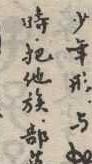 少年形、与
時、把他族、部